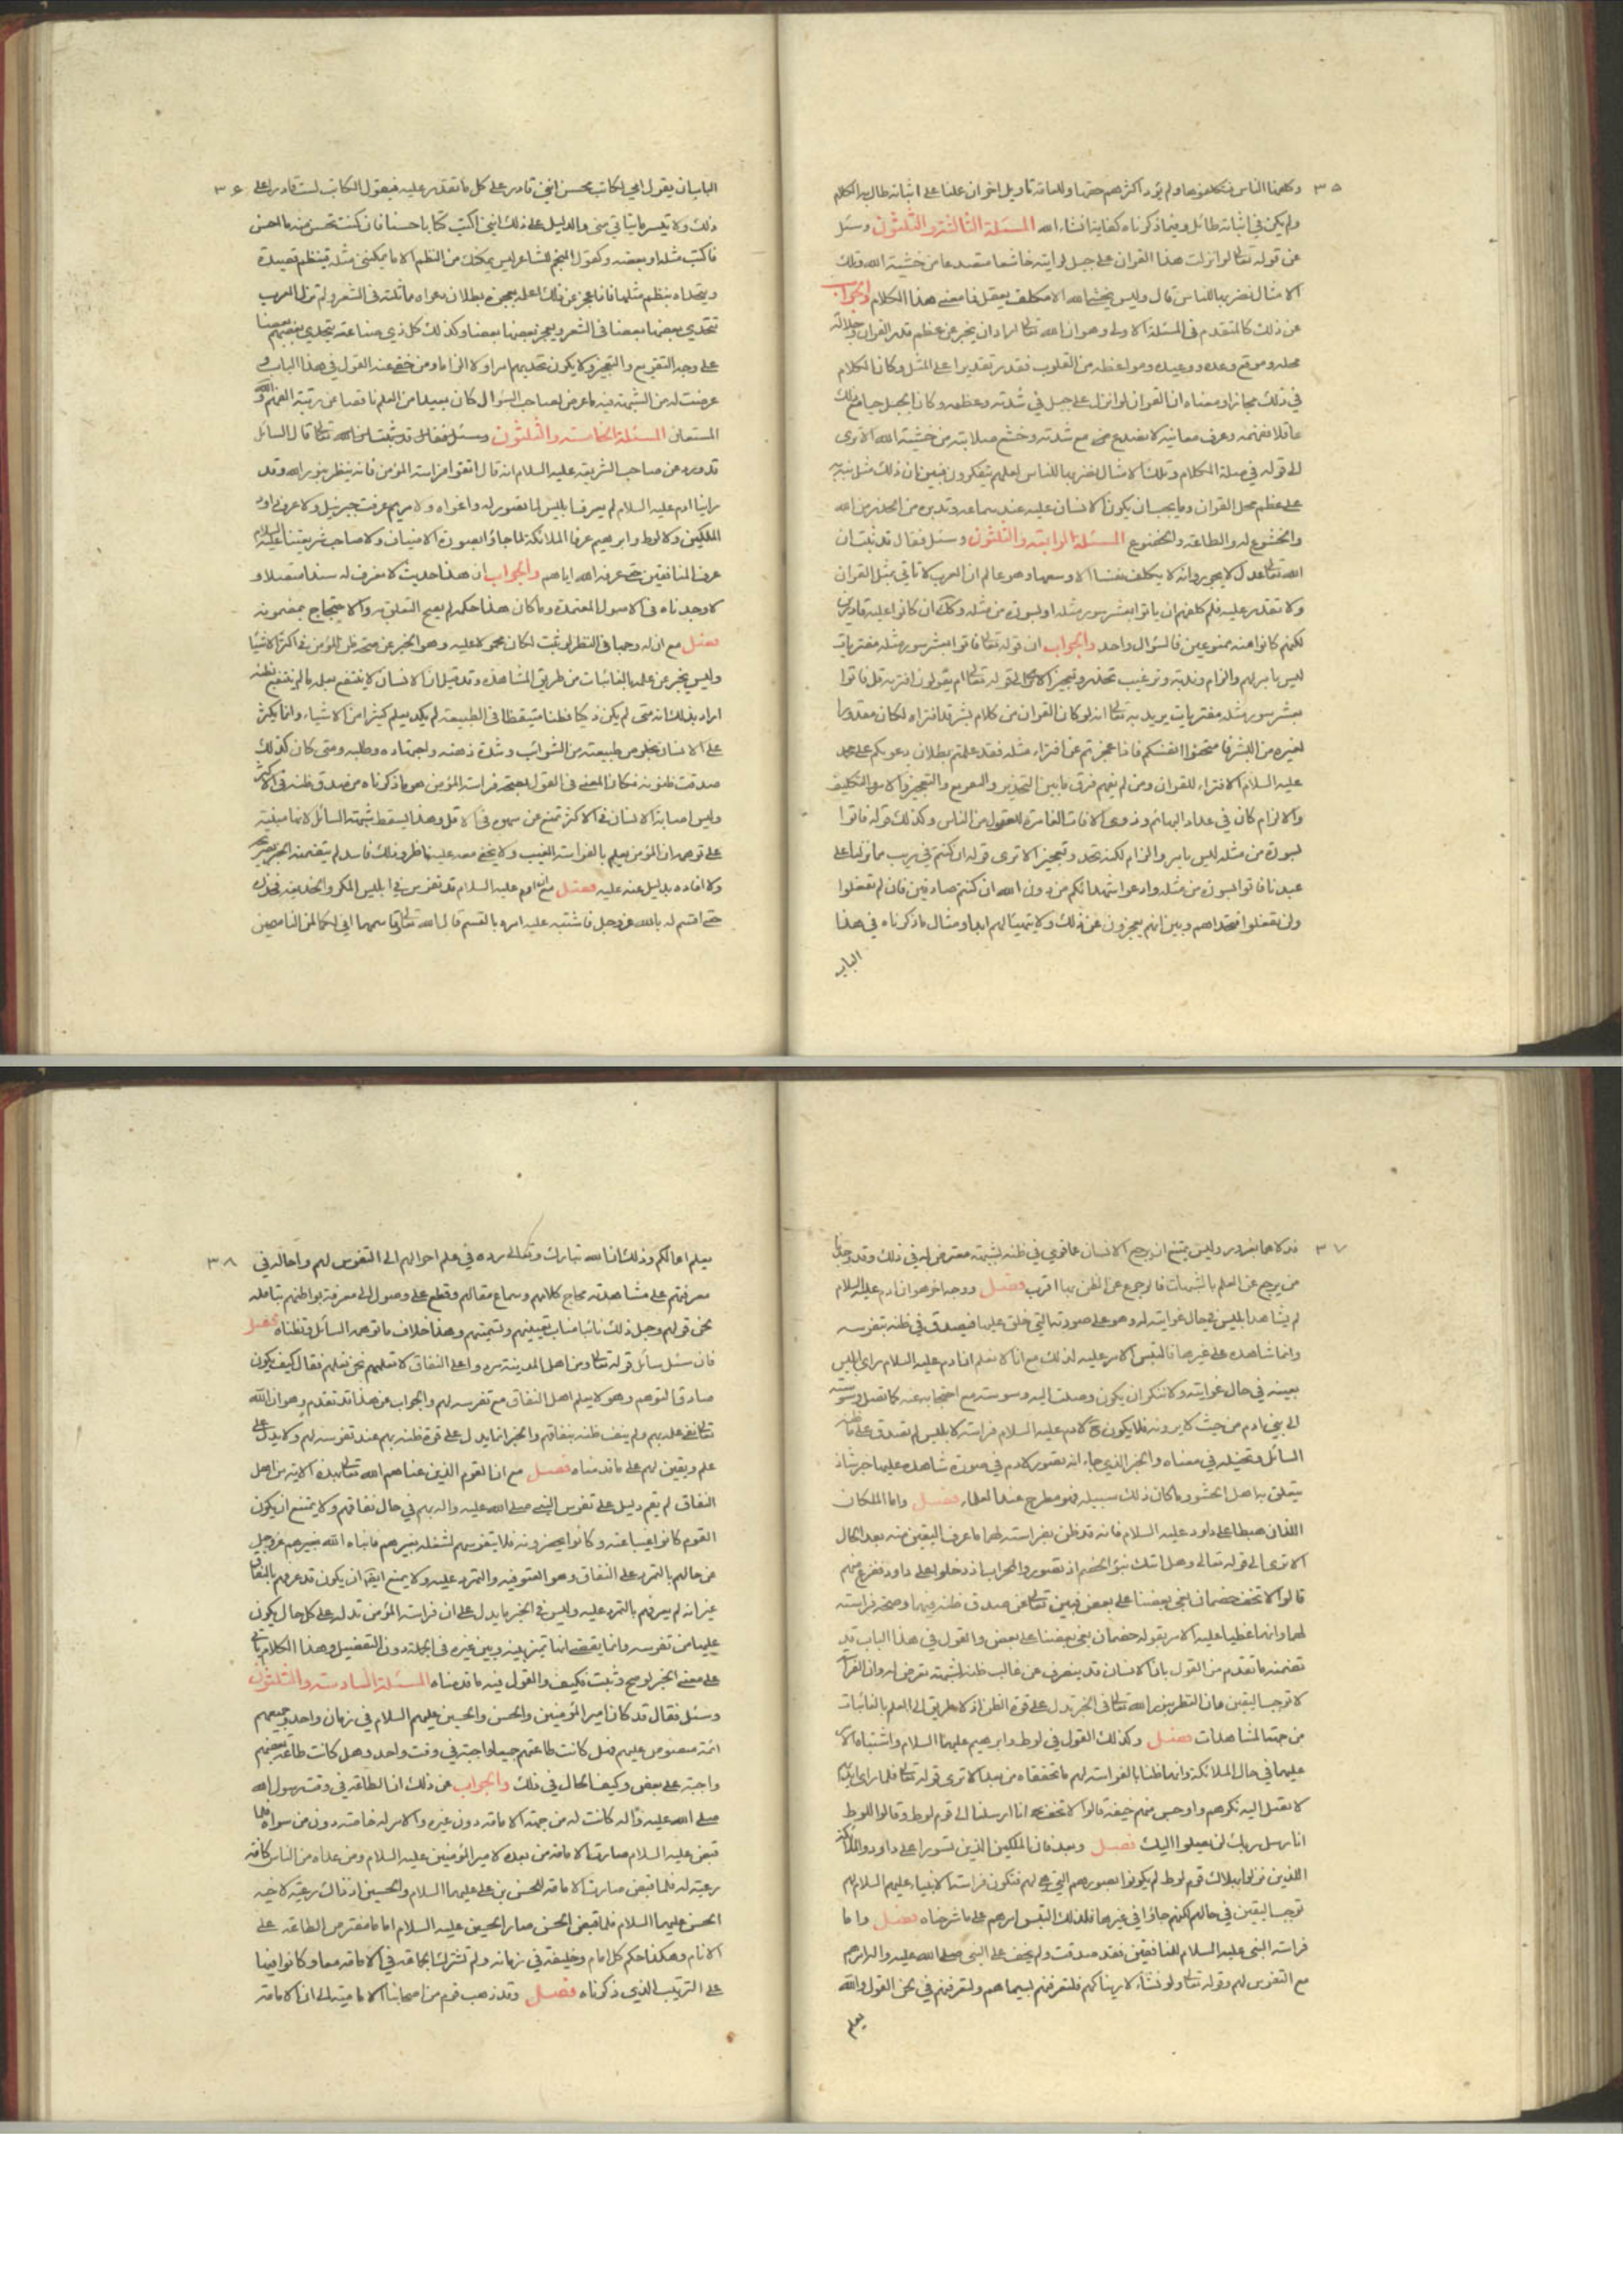 ٣٥
وكلمنا الناس فتكلموها ولم يؤد اكثرهم حقها وللعامة تاويل اخر ان علنا على اثباته طال به الكلام
ولم يكن في اثباته طائل وفيما ذكرناه كفاية انشاء الله المسئلة الثالثة والثلثون وسئل
عن قوله تعالى لو انزلت هذا القران على جبل لرايته خاشعا متصدعا من خشية الله وتلك
الامثال نضربها للناس قال وليس يخشى الله الا مكلف يعقل فما معنى هذا الكلام والجواب
عن ذلك كالمتقدم في المسئلة الاولى وهو ان الله تعالى اراد ان يخبر عن عظم قدر القران وجلالة
محله وموقع وعده ووعيده ومواعظه من القلوب فقدر تقديرا على المثل وكان الكلام
في ذلك مجازا ومعناه ان القران لو انزل على جبل في شدته وعظمه وكان الجبل حيا مع ذلك
عاقلا ففهمه وعرف معانيه لانصدع مع شدته وخشع صلابته من خشية الله الا ترى
الى قوله في صلة الكلام وتلك الامثال نضربها للناس لعلهم يتفكرون فبين ان ذلك مثل نبه به
على عظم محل القران وما يجب ان يكون الانسان عليه عند سماعه وتدبره من الحذر من الله
والخشوع له والطاعة والخضوع المسئلة الرابعة والثلثون وسئل فقال قد ثبت ان
الله تعالى عدل لا يجور وانه لا يكلف نفسا الا وسعها وهو عالم ان العرب لا تاتي بمثل القران
ولا تقدر عليه فلم كلفهم ان ياتوا بعشر سور مثله او بسورة من مثله وكذلك ان كانوا عليه قادرين
لكنهم كانوا عنه ممنوعين فالسؤال واحد والجواب ان قوله تعالى فاتوا بعشر سور مثله مفتريات
ليس بامر لهم والزام وندبة وترغيب لكنه تحد وتعجيز الا ترى الى قوله تعالى ام يقولون افتريه قل فاتوا
بعشر سور مثله مفتريات يريد به تعالى انه لو كان القران من كلام بشر قد افتراه لكان مقدورا
لغيره من البشر فامتحنوا انفسكم فاذا عجزتم عن افتراء مثله فقد علمتم بطلان دعويكم على محمد
عليه السلام الافتراء للقران ومن لم يفهم فرق ما بين التحدي والتقريع والتعجيز والامر والتكليف
والالزام كان في عداد البهائم وذوي الافات الغامرة للعقول من الناس وكذلك قوله فاتوا
بسورة من مثله ليس بامر والزام لكنه تحد وتعجيز الا ترى قوله ان كنتم في ريب مما نزلنا على
عبدنا فاتوا بسورة من مثله وادعوا شهدائكم من دون الله ان كنتم صادقين فان لم تفعلوا
ولن تفعلوا فتحداهم وبين انهم يعجزون عن ذلك ولا يتهيئا لهم ابدا ومثال ما ذكرناه في هذا
الباب
٣٦
الباب ان يقول امي لكاتب محسن انني قادر على كل ما تقدر عليه فيقول الكاتب لست قادرا على
ذلك ولا يتيسر ما يتاتى مني والدليل على ذلك انني اكتب كتابا حسنا فان كنت تحسن منه ما احسن
فاكتب مثله او بعضه وكقول المفحم للشاعر ليس يمكنك من النظم الا ما يمكنني مثله فينظم قصيدة
ويتحداه بنظم مثلها فاذا عجز عن ذلك اعلمه بعجزه بطلان دعواه مماثلته في الشعر ولم تزل العرب
تتحدى بعضها بعضا في الشعر ويعجز بعضها بعضا وكذلك كل ذي صناعة يتحدى بعضهم بعضا
على وجه التقريع والتعجيز ولا يكون تحديهم امرا ولا الزاما ومن خفي عنه القول في هذا الباب و
عرضت له من الشبهة فيه ما عرض لصاحب السؤال كان بعيدا من العلم ناقصا عن رتبة الفهم والله
المستعان المسئلة الخامسة والثلثون وسئل فقال قد ثبت ان الله تعالى قال السائل
قد ورد عن صاحب الشريعة عليه السلام انه قال اتقوا فراسة المؤمن فانه ينظر بنور الله وقد
راينا ادم عليه السلام لم يعرف ابليس لما تصور له واغواه ولا مريم عرفت جبرئيل ولا عرف داود
الملكين ولا لوط وابرهيم عرفا الملائكة لما جاؤا بصورة الاضياف ولا صاحب شريعتنا عليه السلام
عرف المنافقين حتى عرفه الله اياهم والجواب ان هذا حديث لا نعرف له سندا متصلا و
لا وجدناه في الاصول المعتمدة وما كان هذا حكمه لم يصح التعلق به والاحتجاج بمضمونه
فصل مع ان له وجها في النظر لو ثبت لكان محمولا عليه وهو الخبر عن صحة ظن المؤمن في اكثر الاشياء
وليس يخبر عن علمه بالغائبات من طريق المشاهدة وقد قيل ان الانسان لا ينتفع بعلمه ما لم ينتفع بظنه
اراد بذلك انه متى لم يكن ذكيا فطنا متيقظا في الطبيعة لم يكد يعلم كثيرا من الاشياء وانما يكثر
على الانسان بخلوص طبيعته من الشوائب وشدة ذهنه واجتهاده وطلبه ومتى كان كذلك
صدقت ظنونه فكان المعنى في القول بصحة فراسة المؤمن هو ما ذكرناه من صدق ظنه في الاكثر
وليس اصابة الانسان في الاكثر تمنع من سهوه في الاقل وهذا يسقط شبهة السائل لانها مبنية
على توهمه ان المؤمن يعلم بالفراسة الغيب ولا يخفى معه علم باطن وذلك فاسد لم يتضمنه الخبر بصريحه
ولا افاده بدليل عنه عليه فصل مع انه ادم عليه السلام قد تفرس في ابليس المكر والخديعة فحذره
حتى اقسم له بالله عز وجل فاشتبه عليه امره بالقسم قال الله تعالى وقاسمهما اني لكما لمن الناصحين
٣٧
فدلاهما بغرور وليس يمتنع ان يرجع الانسان عما قوي في ظنه لشبهة معترض له في ذلك وقد وجدنا
من يرجع عن العلم بالشبهات فالرجوع عن الظن بها اقرب فصل ووجه اخر هو ان ادم عليه السلام
لم يشاهد ابليس في حال غوايته له وهو على صورته التي خلق عليها فيصدق في ظنه بتفرسه
وانما شاهده على غيرها فالتبس الامر عليه لذلك مع انا لا نعلم ان ادم عليه السلام راى ابليس
بعينه في حال غوايته ولا ننكر ان يكون وصلت اليه وسوسته مع احتجابه عنه كما تصل وسوسته
الى بني ادم من حيث لا يرونه فلا يكون ح لادم عليه السلام فراسة لابليس لم تصدق على ما ظنه
السائل وتخيله في معناه والخبر الذي جاء انه تصور لادم في صورة شاهده عليها خبر شاذ
يتعلق به اهل الحشو وما كان ذلك سبيله فهو مطرح عند العلماء فصل واما الملكان
اللذان هبطا على داود عليه السلام فانه قد ظن بفراسته لهما ما عرف اليقين منه بعد الحال
الا ترى الى قوله تعالى وهل اتيك نبؤ الخصم اذ تسوروا المحراب اذ دخلوا على داود ففزع منهم
قالوا لا تخف خصمان بغى بعضنا على بعض فبين تعالى عن صدق ظنه فيهما وصحة فراسته
لهما وانهما غطيا عليه الامر بقوله خصمان بغى بعضنا على بعض والقول في هذا الباب قد
تضمنه ما تقدم من القول بان الانسان قد ينصرف عن غالب ظنه لشبهة تعرض له وان الفراسة
لا توجب اليقين فان النظر بنور الله تعالى في الخبر تدل على قوة الظن اذ لا طريق الى العلم بالغائبات
من جهة المشاهدات فصل وكذلك القول في لوط وابرهيم عليهما السلام واشتباه الامر
عليهما في حال الملائكة وانهما ظنا بالفراسة لهم ما تحققاه من بعد الا ترى قوله تعالى فلما راى ايديهم
لا تصل اليه نكرهم واوجس منهم خيفة قالوا لا تخف انا ارسلنا الى قوم لوط وقالوا للوط
انا رسل ربك لن يصلوا اليك فصل وبعد فان الملكين الذين تسورا على داود والملائكة
اللذين نزلوا بهلاك قوم لوط لم يكونوا بصورهم التي هي لهم فتكون فراسة الانبياء عليهم السلام لهم
توجب اليقين في حالهم لكنهم جاؤا في غيرها فلذلك التبس امرهم على ما شرحناه فصل واما
فراسة النبي عليه السلام للمنافقين فقد صدقت ولم يخف على النبي صلى الله عليه واله امرهم
مع التفرس لهم وقوله تعالى ولو نشاء لاريناكهم فلتعرفنهم بسيماهم ولتعرفنهم في لحن القول والله
يعلم
٣٨
يعلم اعمالكم وذلك ان الله تبارك وتعالى رده في علم احوالهم الى التفرس لهم واحاله في
معرفتهم على مشاهدته مخارج كلامهم وسماع مقالهم وقطع على وصوله الى معرفة بواطنهم بتامله
لحن قولهم وجعل ذلك نائبا مناب تعيينهم وتسميتهم وهذا خلاف ما توهمه السائل وتظناه فصل
فان سئل سائل قوله تعالى ومن اهل المدينة مردوا على النفاق لا تعلمهم نحن نعلمهم فقال كيف يكون
صادق التوهم وهو لا يعلم اهل النفاق مع تفرسه لهم والجواب عن هذا قد تقدم وهو ان الله
تعالى نفى علمه بهم ولم ينف ظنه بنفاقهم والخبر انما يدل على قوة ظنه بهم عند تفرسه لهم ولا يدل على
علم ويقين لهم على ما قدمناه فصل مع ان القوم الذين عناهم الله تعالى بهذه الاية من اهل
النفاق لم يقم دليل على تفرس النبي صلى الله عليه واله بهم في حال نفاقهم ولا يمتنع ان يكون
القوم كانوا غيبا عنه وكانوا يحضرونه فلا يتفرسهم لشغله بغيرهم فانباه الله بغيرهم عز وجل
عن حالهم بالتمرد على النفاق وهو العتو فيه والتمرد عليه ولا يمنع ايضا ان يكون قد عرفهم بالنفاق
غير انه لم يعرفهم بالتمرد عليه وليس في الخبر ما يدل على ان فراسة المؤمن تدله على كل حال يكون
عليها من تفرسه وانما يقتضي انما تميز بينه وبين غيره في الجملة دون التفصيل وهذا الكلام ياتي
على معنى الخبر لو صح وثبت فكيف والقول فيه ما قدمناه المسئلة السادسة والثلثون
وسئل فقال قد كان امير المؤمنين والحسن والحسين عليهم السلام في زمان واحد وجميعهم
ائمة منصوص عليهم فهل كانت طاعتهم جميعا واجبة في وقت واحد وهل كانت طاعة بعضهم
واجبة على بعض وكيف الحال في ذلك والجواب عن ذلك ان الطاعة في وقت رسول الله
صلى الله عليه واله كانت له من جهة الامامة دون غيره والامر له خاصة دون من سواه فلما
قبض عليه السلام صارت الامامة من بعده لامير المؤمنين عليه السلام ومن عداه من الناس كافة
رعية له فلما قبض صارت الامامة للحسن بن علي عليهما السلام والحسين اذ ذاك رعية لاخيه
الحسن عليهما السلام فلما قبض الحسن صار الحسين عليه السلام اماما مفترض الطاعة على
الانام وهكذا حكم كل امام وخليفة في زمانه ولم تشترك الجماعة في الامامة معا وكانوا فيها
على الترتيب الذي ذكرناه فصل وقد ذهب قوم من اصحابنا الامامية الى ان الامامة